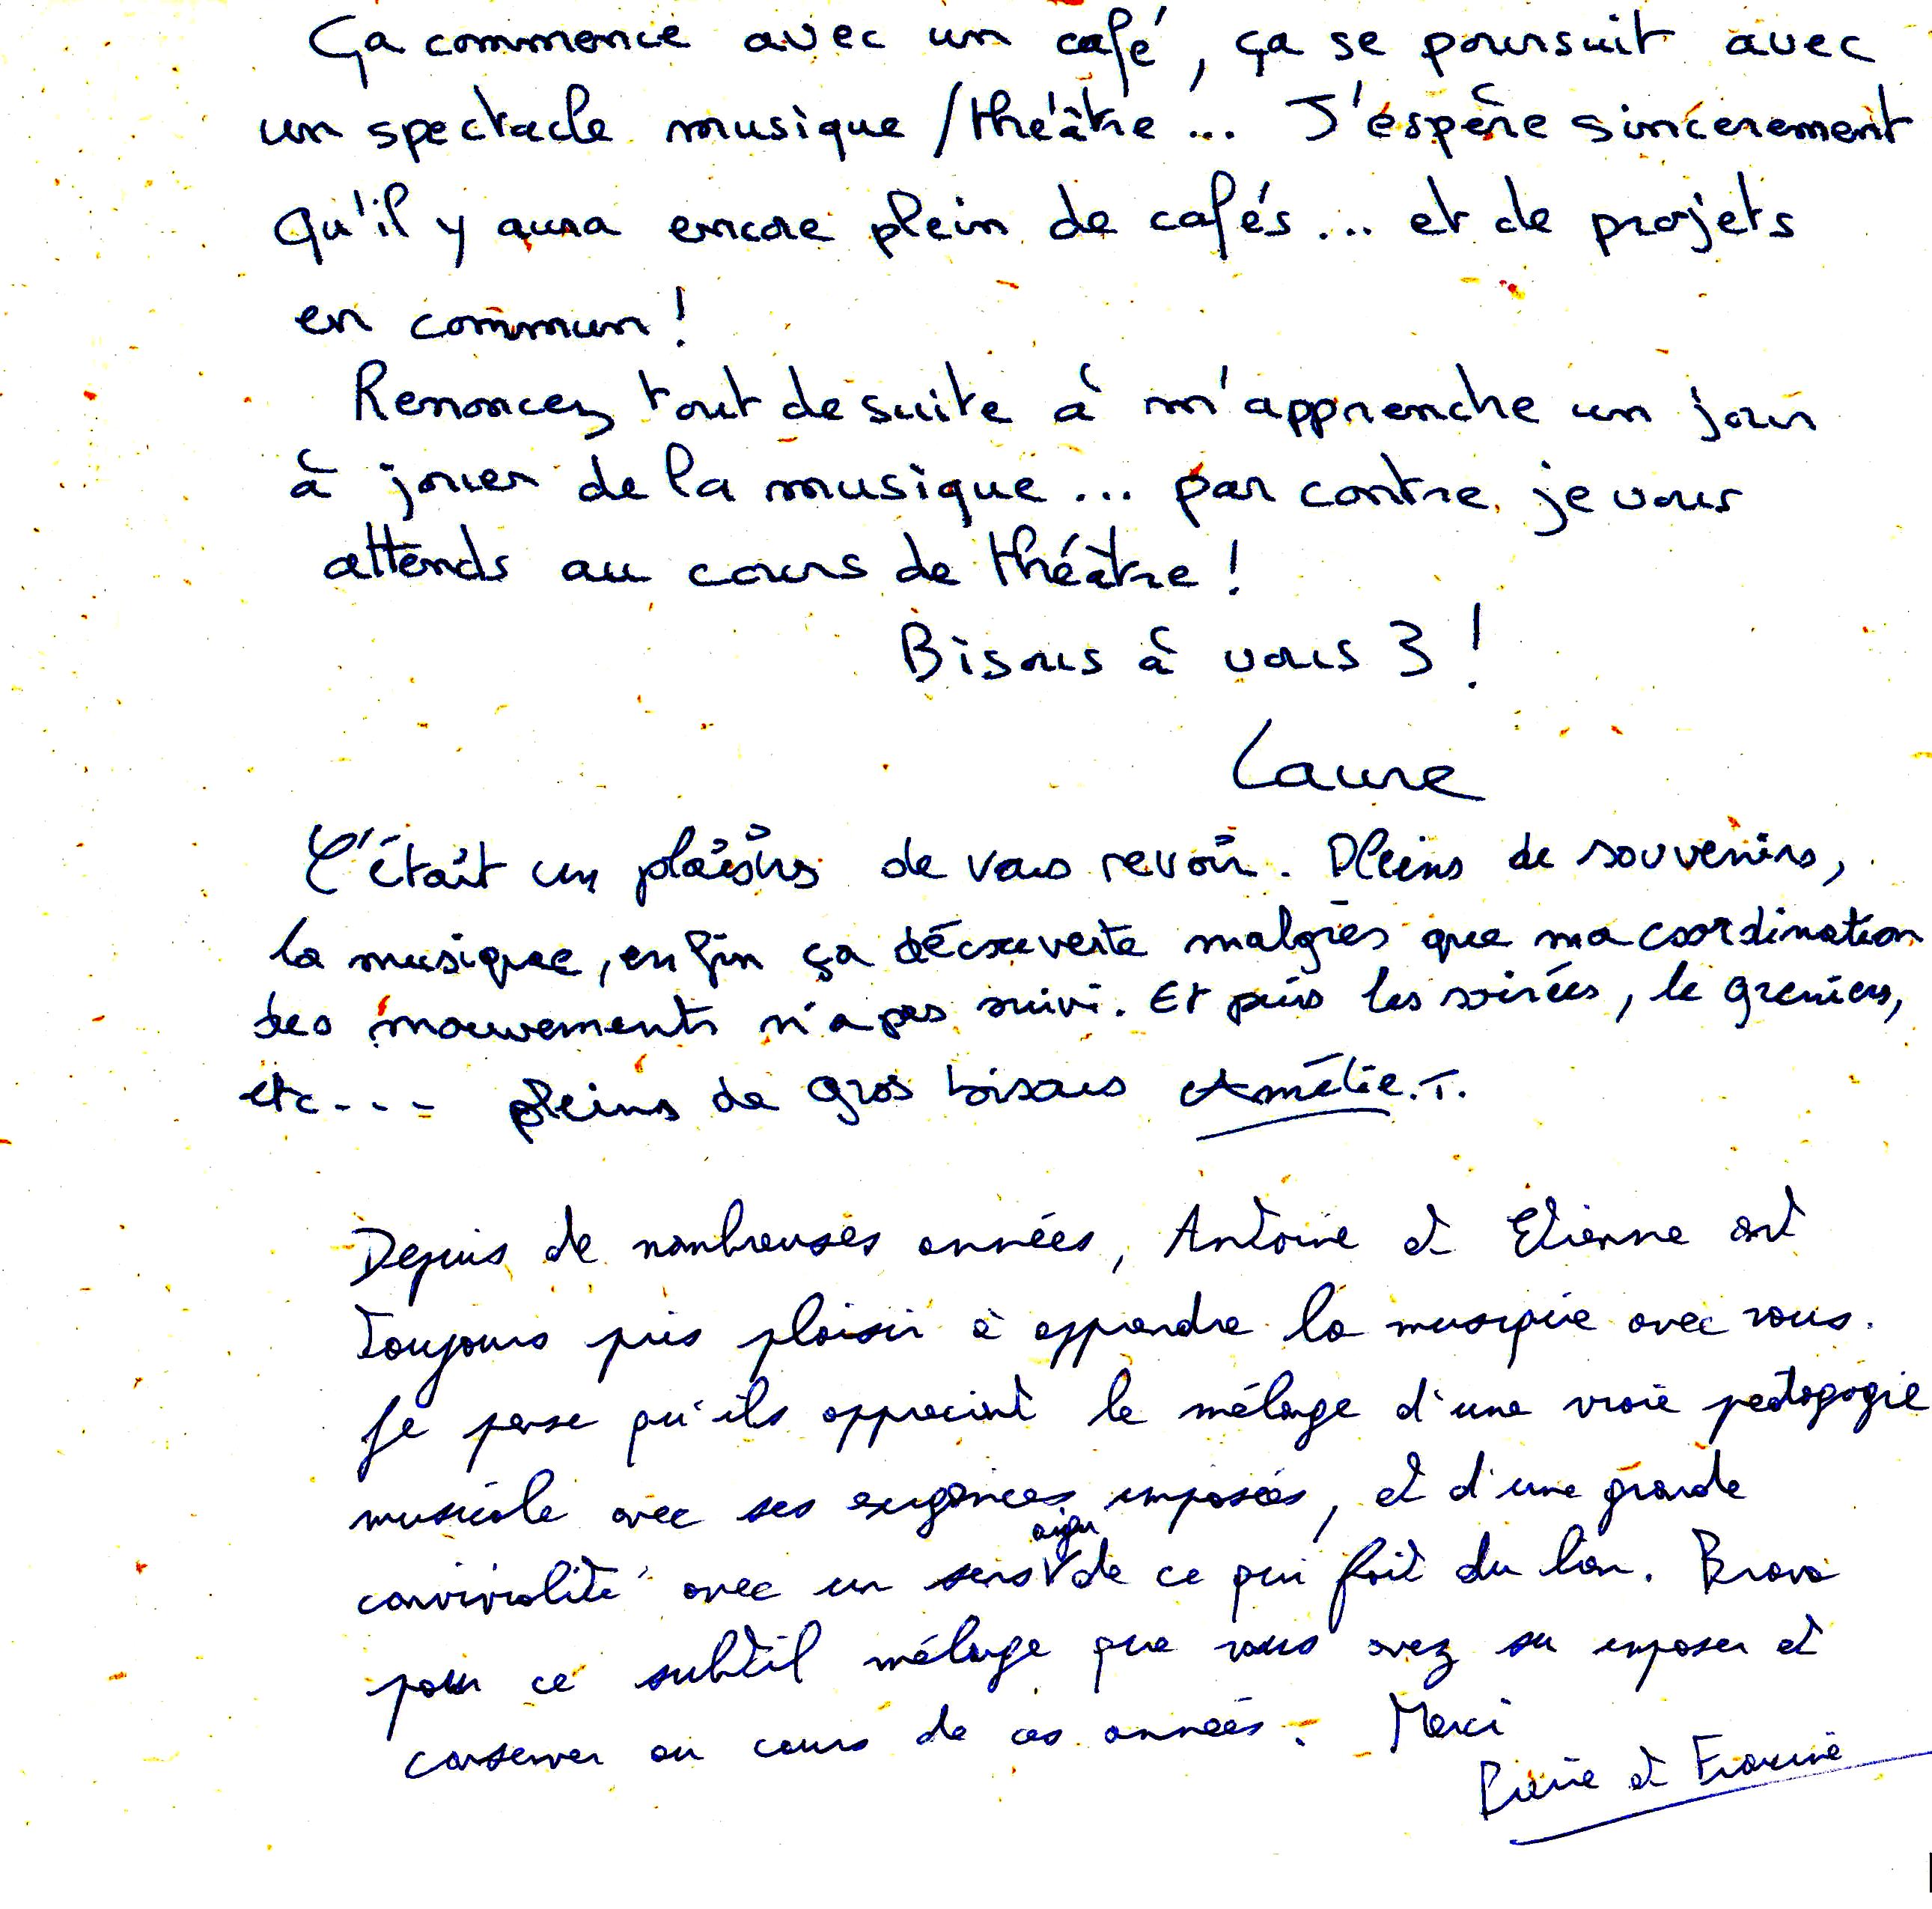 Ça commence avec un café, ça se poursuit avec
un spectacle musique / théâtre ... J'éspère sincerement
qu'il y aura encore plein de cafés ... et de projets
en commun !
Renoncez tout de suite à m'apprendre un jour
à jouer de la musique ... par contre je vous
attends au cours de théâtre !
Bisous à vous 3 !
Laure
C'était un plaisirs de vous revoir. Pleins de souvenirs,
la musique, enfin ça découverte malgrès que ma coordination
des mouvements n'a pas suivi. Et puis les soirées, le greniers,
etc---- pleins de gros bisous Amélie.T.
Depuis de nombreuses années, Antoine et Etienne ont
toujours pris plaisir à apprendre la musique avec vous.
Je pense qu'ils apprecient le mélange d'une vraie pedagogie
musicale avec ses exigences imposées, et d'une grande
convivialité avec un sens aigu de ce qui fait du lien. Bravo
pour ce subtil mélange que vous avez su imposer et
conserver au cours de ces années. Merci
Pierre et Francine